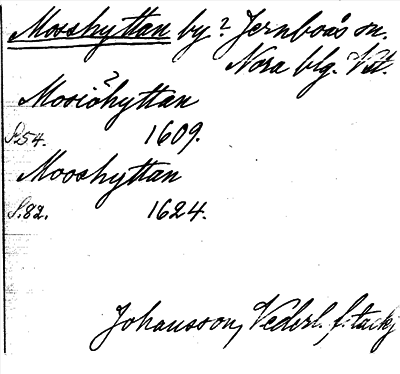 Mosshyttan by? Jernboås sn.
Nora blg. Vstm.
?
Mosiöhyttan
S.54. 1609.
Mosshyttan
S.82. 1624.
Johansson, Vederl. f. tackj